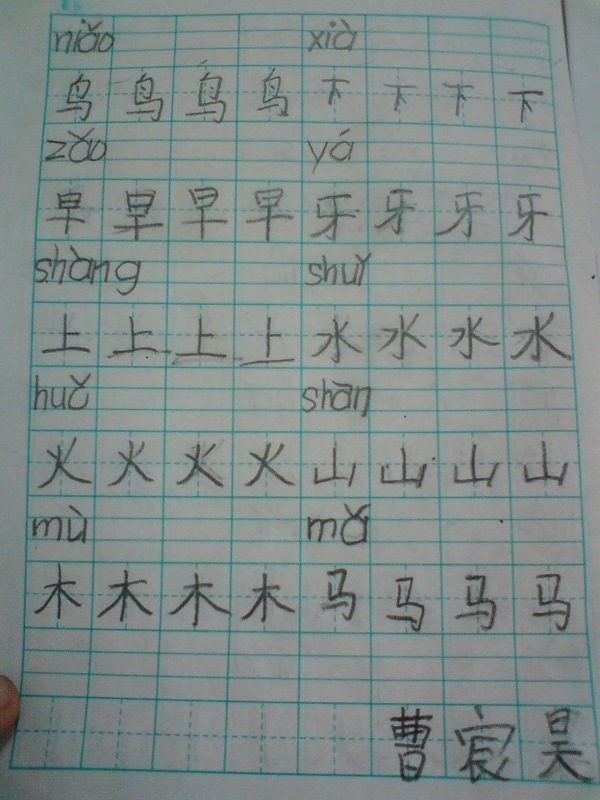 niǎo xià
鸟 鸟 鸟 鸟 下 下 下 下
zǎo yá
早 早 早 早 牙 牙 牙 牙
shàng shuǐ
上 上 上 上 水 水 水 水
huǒ shān
火 火 火 火 山 山 山 山
mù mǎ
木 木 木 木 马 马 马 马
曹 宸 昊